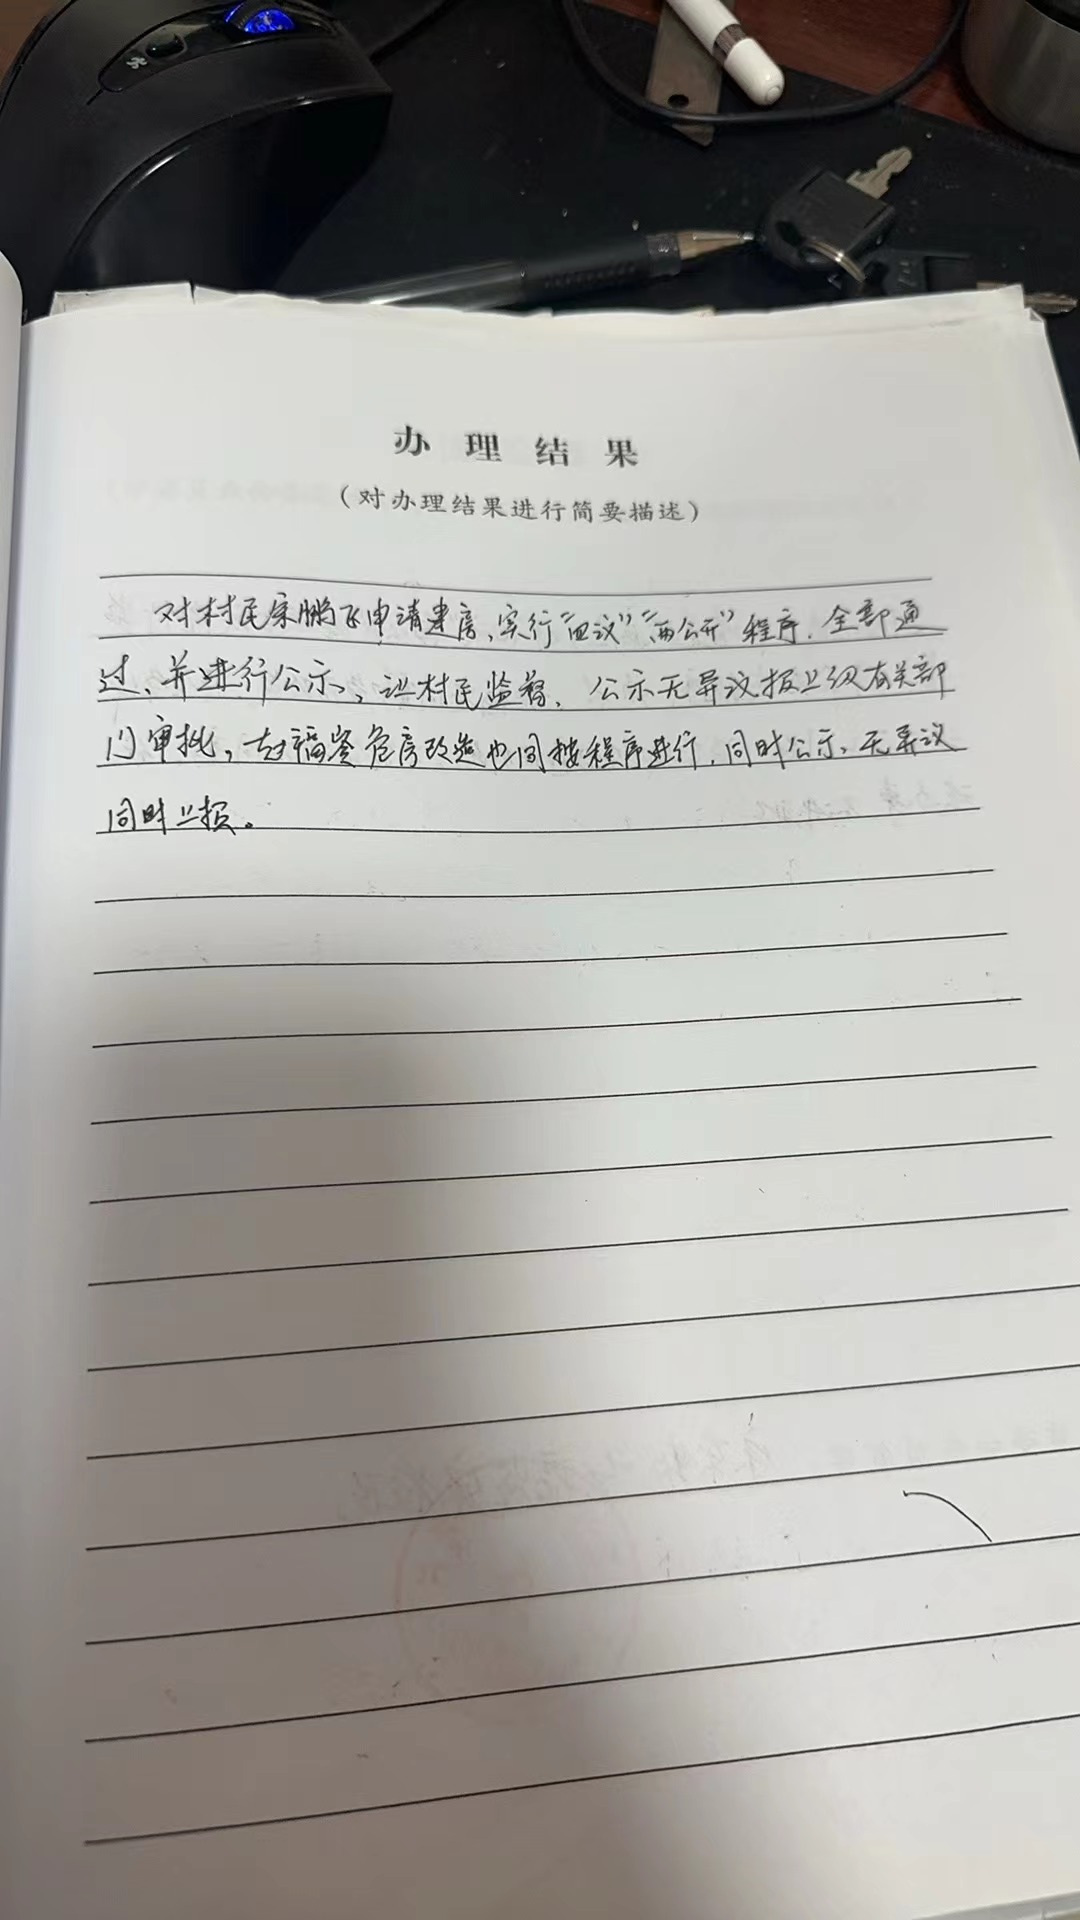 办理结果
（对办理结果进行简要描述）
对村民宋鹏飞申请建房、实行“四议”“两公开”程序.全部通
过、并进行公示、让村民监督、公示无异议报上级有关部
门审批，福荣危房改造也同按程序进行.同时公示、无异议
同时上报。